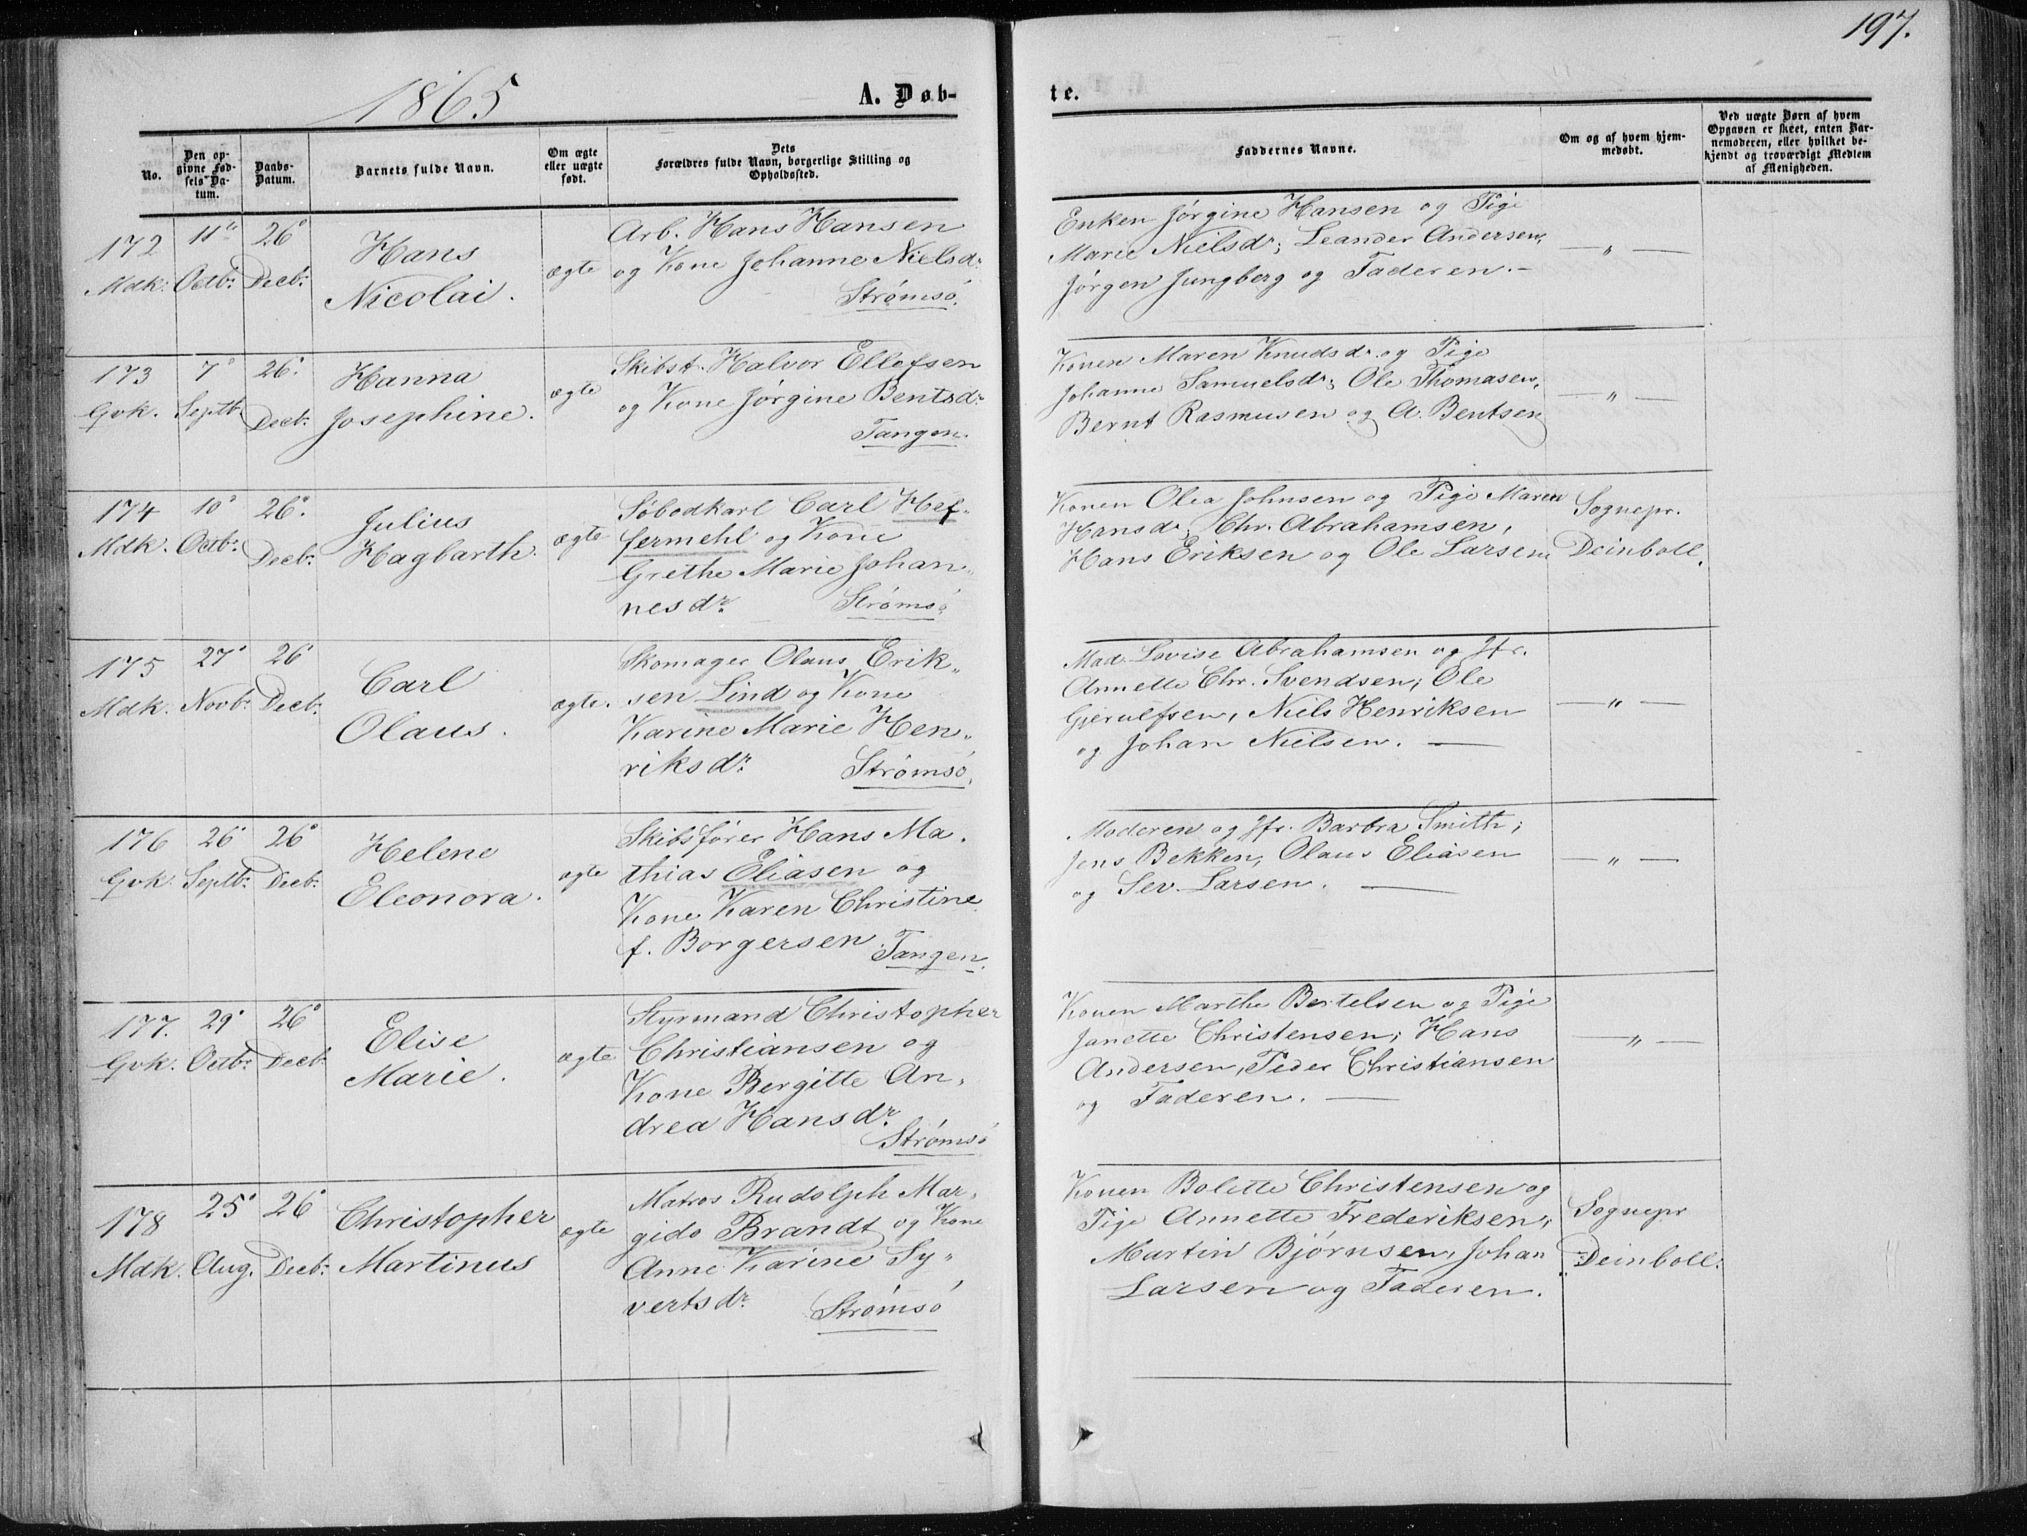 197.
1865
A. Døb-
te.
No.
Den op-
givne Fød-
sels Da-
tum.
Daabs-
Datum.
Barnets fulde Navn.
Om ægte
eller uægte
født.
Dets
Forældres fulde Navn, borgerlige Stilling og
Opholdssted.
Faddernes Navne.
Om og af hvem hjem-
medøbt.
Ved uægte Børn af hvem
Opgaven er skeet, enten Bar-
nemoderen, eller hvilket be-
kjendt og troværdigt Medlem
af Menigheden.
172
Mdk.
11te
Octbr.
26de
Decbr.
Hans
Nicolai.
ægte
Arb. Hans Hansen
og Kone Johanne Nielsdr.
Strømsö.
Enken Jørgine Hansen og Pige
Marie Nielsdr; Leander Andersen,
Jørgen Jungberg og Faderen. —
— " —
173
Gvk.
7de
Septbr.
26.
Decbr.
Hanna
Josephine.
ægte
Skibst. Halvor Ellefsen
og Kone Jørgine Bentsdr.
Tangen.
Konen Maren Knudsdr. og Pige
Johanne Samuelsdr; Ole Thomasen,
Bernt Rasmusen og A. Bentsen
— " —
174
Mdk.
10de
Octbr.
26.
Decbr.
Julius
Hagbarth.
ægte
Søbodkarl Carl Hef-
fermehl og Kone
Grethe Marie Johan-
nesdr. Strømsö
Konen Olea Johnsen og Pige Maren
Hansdr; Chr. Abrahamsen,
Hans Eriksen og Ole Larsen.
Sognepr.
Deinboll.
175
Mdk.
27.
Novbr.
26
Decbr.
Carl
Olaus.
ægte.
Skomager Olaus Erik-
sen Lind og Kone
Karine Marie Hen-
riksdr. Strømsö.
Mad. Lovise Abrahamsen og Jfr.
Annette Chr. Svendsen; Ole
Gjerulfsen, Niels Henriksen
og Johan Nielsen. —
— " —
176
Gvk.
26
Septbr.
26
Decbr.
Helene
Eleonora.
ægte
Skibsfører Hans Ma-
thias Eliasen og
Kone Karen Christine
f. Borgersen. Tangen.
Moderen og Jfr. Barbra Smith;
Jens Bekken, Olaus Eliasen
og Sev. Larsen. —
— " —
177.
Gvk.
29.
Octbr.
26
Decbr.
Elise
Marie.
ægte
Styrmand Christopher
Christiansen og
Kone Bergitte An-
drea Hansdr.
Strømsö
Konen Marthe Bertelsen og Pige
Janette Christensen; Hans
Andersen, Peder Christiansen
og Faderen. —
— " —
178
Mdk.
25.
Aug.
26
Decbr.
Christopher
Martinus
ægte
Matros Rudolph Mar-
gido Brandt og Kone
Anne Karine Sy-
vertsdr. Strømsö
Konen Bolette Christensen og
Pige Annette Frederiksen;
Martin Bjørnsen, Johan
Larsen og Faderen.
Sognepr
Deinboll.